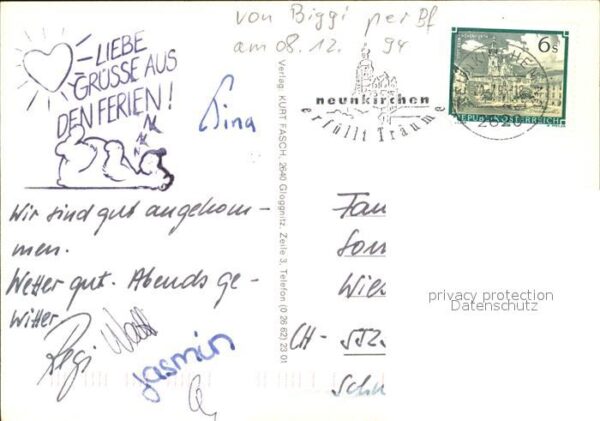 von Biggi per Bf
am 08.12. 94
LIEBE
GRÜSSE AUS
DEN FERIEN!
Nina
neunkirchen
erfüllt Träume
6s
REPUBLIK ÖSTERREICH
2620
Verlag: KURT FASCH, 2640 Gloggnitz, Zeile 3, Telefon (0 26 62) 23 01
Wir sind gut angekom-
men.
Wetter gut. Abends ge-
witter.
Regi
Jasmin
Fam
Son
Wies
CH - 552
Sch
privacy protection
Datenschutz